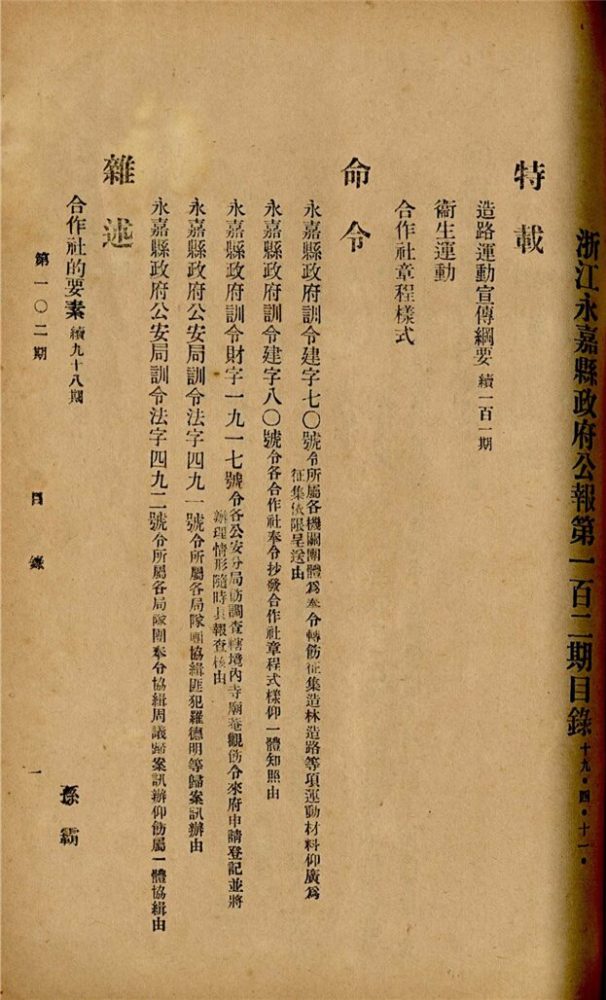 浙江永嘉縣政府公報第一百二期目錄 十九・四・十一・
特載
造路運動宣傳綱要 續一百一期
衞生運動
合作社章程樣式
命令
永嘉縣政府訓令建字七〇號令所屬各機關團體爲奉令轉飭征集造林造路等項運動材料仰廣爲
征集依限呈送由
永嘉縣政府訓令建字八〇號令各合作社奉令抄發合作社章程式樣仰一體知照由
永嘉縣政府訓令財字一九一七號令各公安分局飭調查轄境內寺廟菴觀飭令來府申請登記並將
辦理情形隨時具報查核由
永嘉縣政府公安局訓令法字四九一號令所屬各局隊團協緝匪犯羅德明等歸案訊辦由
永嘉縣政府公安局訓令法字四九二號令所屬各局隊團奉令協緝周議歸案訊辦仰飭屬一體協緝由
雜述
合作社的要素 續九十八期
孫霸
第一〇二期
目錄
一